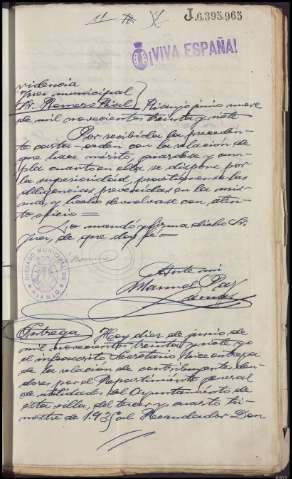 J.6.395.965
¡VIVA ESPAÑA!
videncia
Juez municipal
Sr. Romero junio nueve
de mil novecientos treinta y siete
Por recibida la preceden-
te carta-orden con la relación de
que hace mérito, guardese y cum-
pla cuanto en ella se dispone por
la superioridad, practiquense las
diligencias prevenidas en la mis-
ma, y hecho devuelvase con aten-
to oficio =
Lo mandó y firma dicho Sr.
Juez, de que doy fe =
Ante mi
Manuel
Entrega Hoy diez de junio de
mil novecientos treinta y siete yo
el infrascrito Secretario hice entrega
de la relación de contribuyentes deu-
dores, por el Repartimiento general
de utilidades del Ayuntamiento de
esta villa, del tercer y cuarto tri-
mestre de 1.935 al Recaudador Don